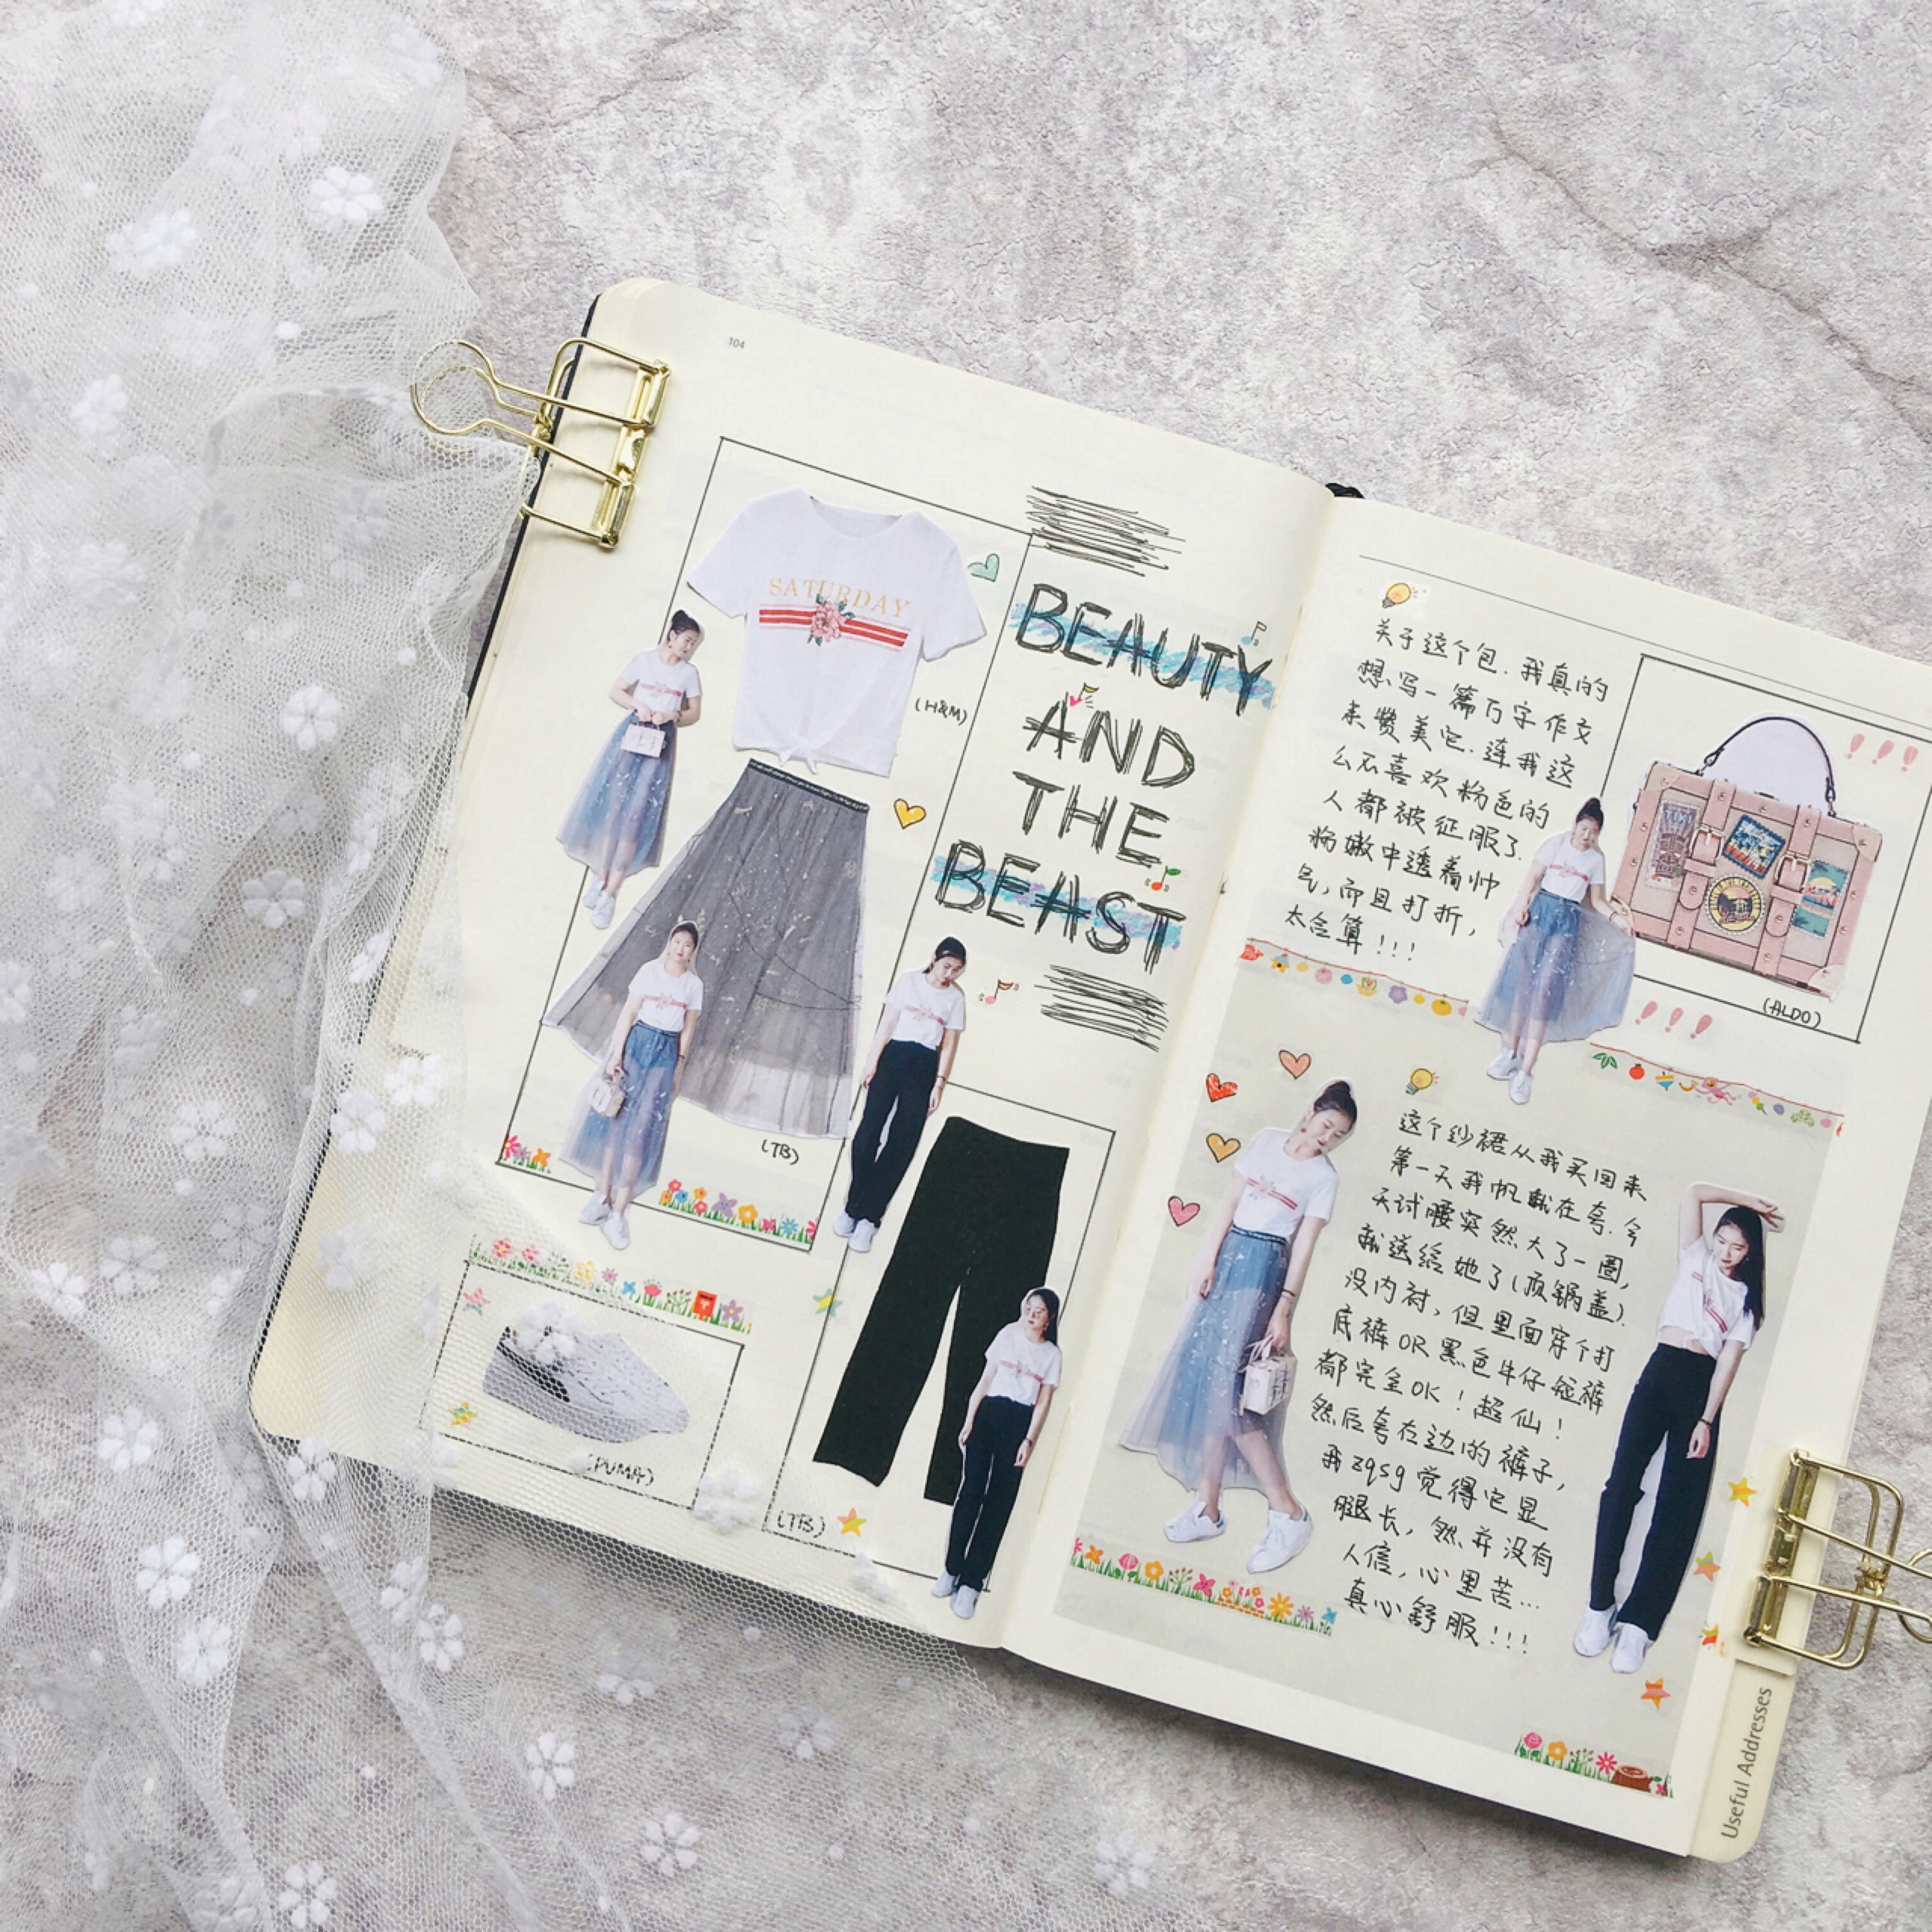 104
SATURDAY
(H&M)
BEAUTY
AND
THE
BEAST
(TB)
(PUMA)
(TB)
关于这个包.我真的
想写一篇万字作文
来赞美它.连我这
么不喜欢粉色的
人都被征服了.
粉嫩中透着帅
气,而且打折,
太合算!!!
(ALDO)
!!!
!!!
这个纱裙从我买回来
第一天我帆就在夸.今
天讨腰突然大了一圈,
就送给她了(顶锅盖).
没内衬,但里面穿个打
底裤OR黑色牛仔短裤
都完全OK!超仙!
然后夸右边的裤子,
我zqsg觉得它显
腿长,然并没有
人信,心里苦...
真心舒服!!!
Useful Addresses